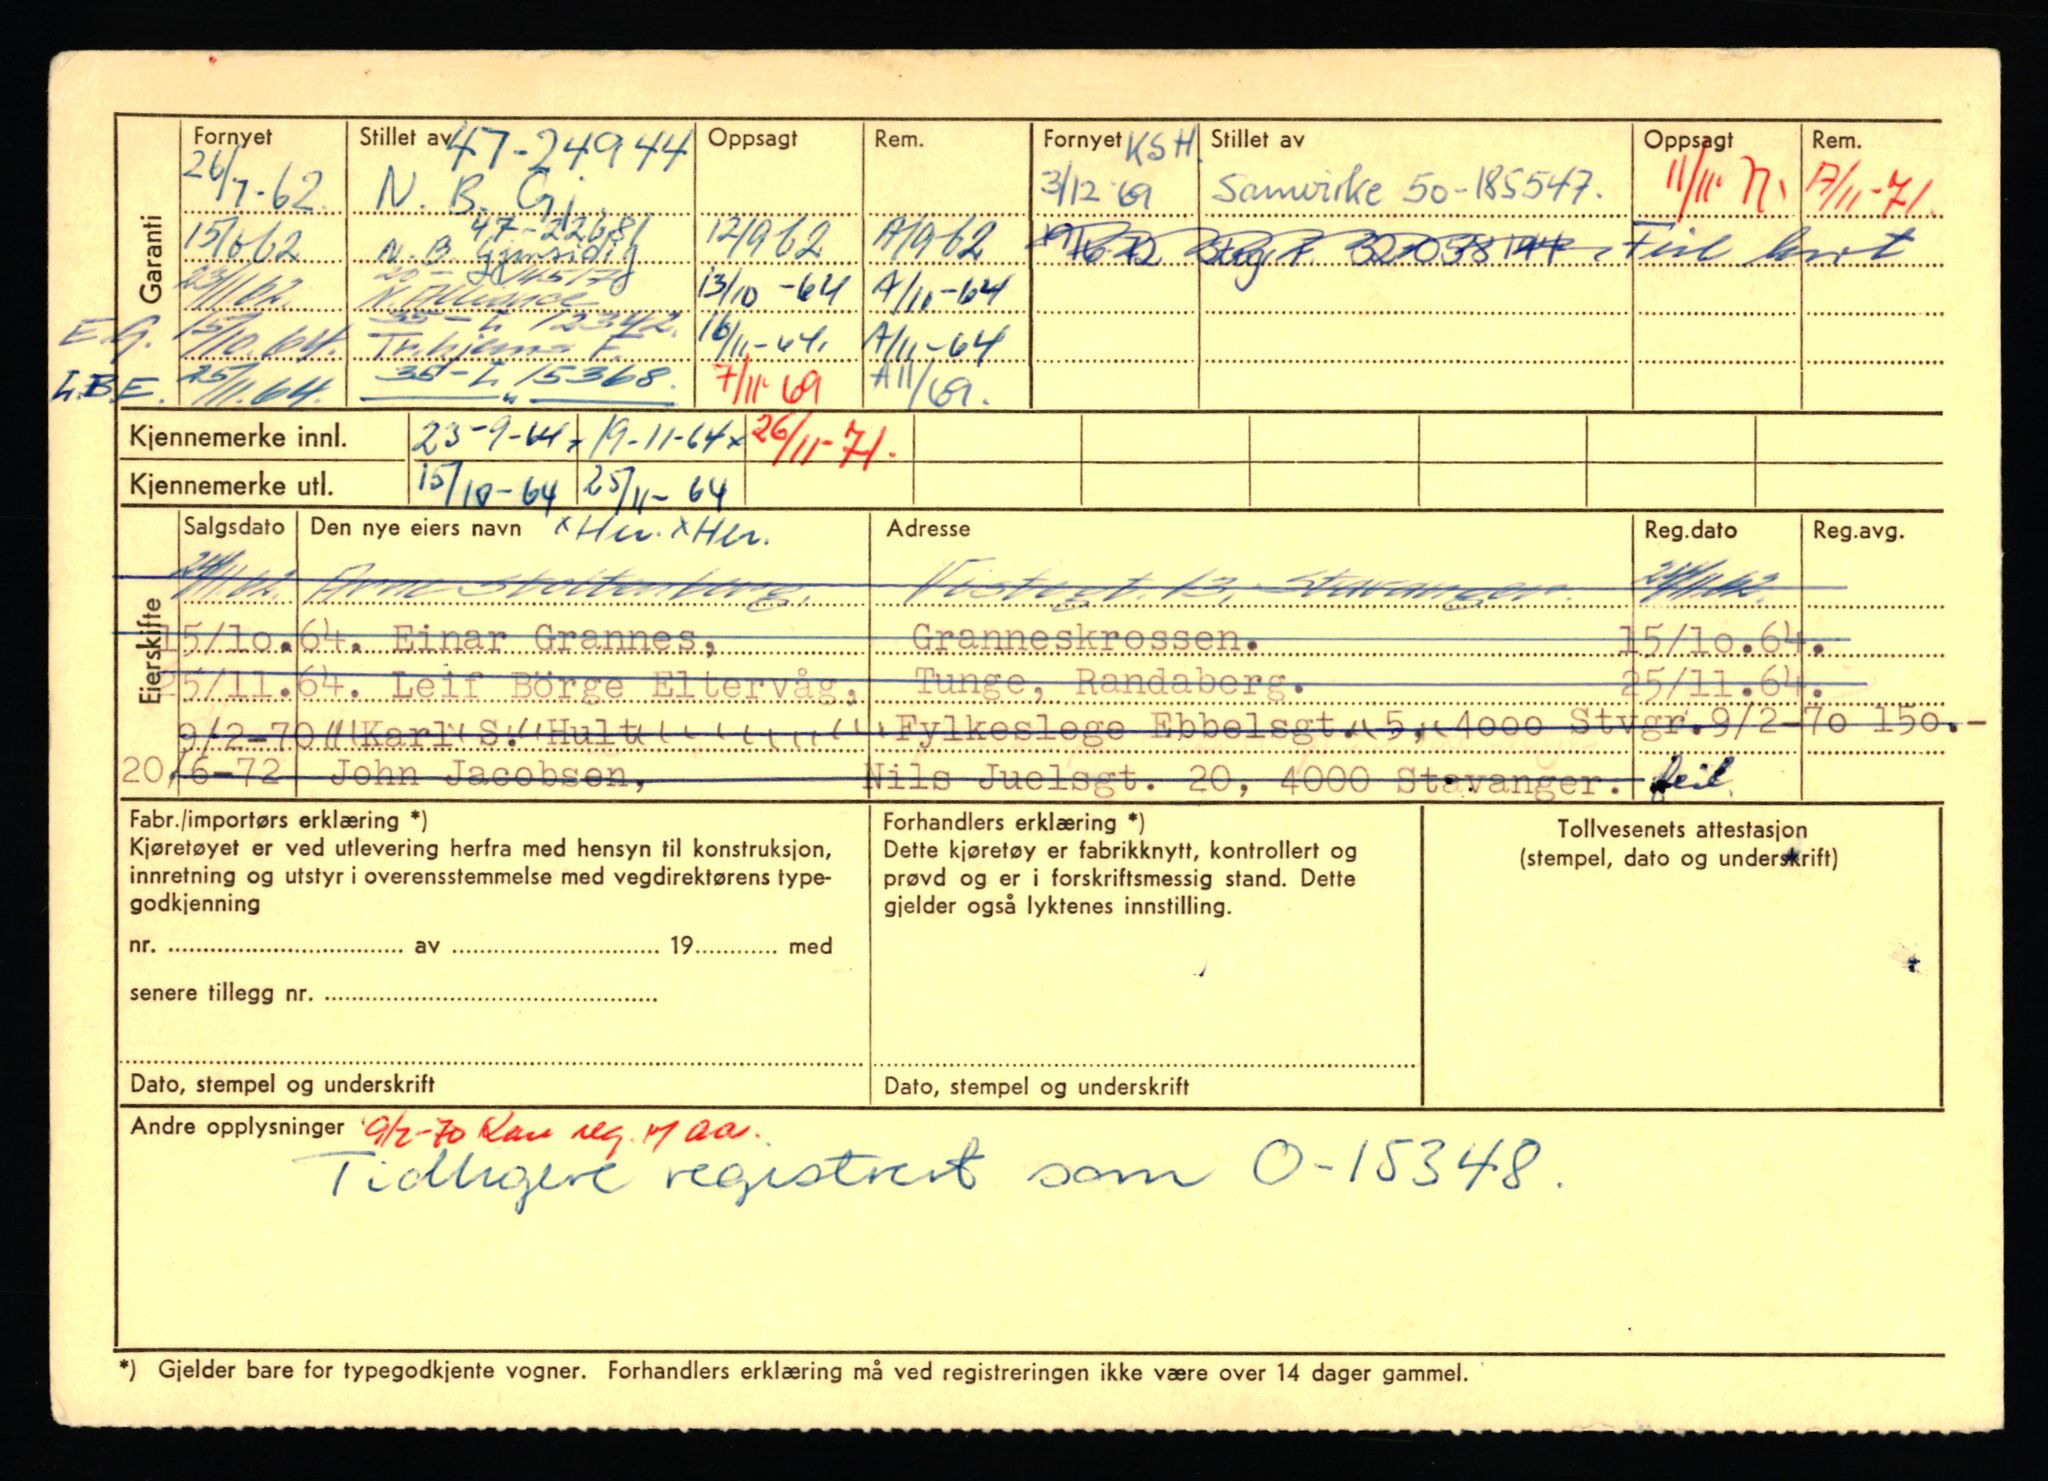 Garanti
Fornyet Stillet av 47-24944 Oppsagt Rem. Fornyet KSH. Stillet av Oppsagt Rem.
26/7-62. N. B. Gj. 3/12 69 Samvirke 50-185547. 11/11 71. A/11-71.
47-22681
15/8 62 N. B. Gjensidig 12/9 62 A/9 62 Feil kort
23/11.62. N. Alliance 13/10-64 A/11-64
35-L 12342.
E.G. 15/10.64. Tr.hjems F. 16/11-64. A/11-64
L.B.E. 25/11.64. 35-L 15368. 7/11-69 A 11/69.
Kjennemerke innl. 23-9-64x 19-11-64x 26/11-71.
Kjennemerke utl. 15/10-64 25/11-64
Eierskifte
Salgsdato Den nye eiers navn xHer. xHer. Adresse Reg.dato Reg.avg.
24/11.62. Arne Stoltenberg, Vistegt. 13, Stavanger. 24/11.62.
15/10.64. Einar Grannes, Granneskrossen. 15/10.64.
25/11.64. Leif Börge Eltervåg, Tunge, Randaberg. 25/11.64.
9/2-70 Karl S. Hult Fylkeslege Ebbelsgt. 5, 4000 Stvgr. 9/2-70 150.-
20/6-72 John Jacobsen, Nils Juelsgt. 20, 4000 Stavanger. feil.
Fabr./importørs erklæring *)
Kjøretøyet er ved utlevering herfra med hensyn til konstruksjon,
innretning og utstyr i overensstemmelse med vegdirektørens type-
godkjenning
nr. .................... av .................... 19.......... med
senere tillegg nr. ....................
Dato, stempel og underskrift
Forhandlers erklæring *)
Dette kjøretøy er fabrikknytt, kontrollert og
prøvd og er i forskriftsmessig stand. Dette
gjelder også lyktenes innstilling.
Dato, stempel og underskrift
Tollvesenets attestasjon
(stempel, dato og underskrift)
Andre opplysninger 9/2-70 Kan reg.
Tidligere registrert som O-15348.
*) Gjelder bare for typegodkjente vogner. Forhandlers erklæring må ved registreringen ikke være over 14 dager gammel.